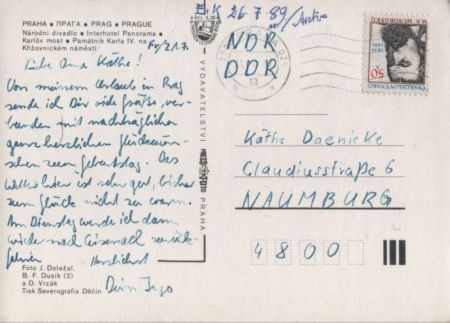 PRAHA • ПРАГА • PRAG • PRAGUE
Národní divadlo • Interhotel Panorama •
Karlův most • Památník Karla IV. na
Křižovnickém náměstí
Fr/21.7.
Liebe Oma Käthe!
Von meinem Urlaub in Prag
sende ich Dir viele Grüße, ver-
bunden mit nachträglichen
ganz herzlichen Glückwün-
schen zum Geburtstag. Das
Wetter hier ist sehr gut, bisher
zum Glück nicht zu warm.
Am Dienstag werde ich dann
wieder nach Eisenach zurück-
fahren
Herzlichst
Dein Ingo
Foto J. Doležal,
B. F. Dusík (2)
a D. Vrzák
Tisk Severografia Děčín
VYDAVATELSTVÍ
PRAHA
E.K 26.7.89
NDR
DDR
50
ČESKOSLOVENSKO
Käthe Daenicke
Claudiusstraße 6
NAUMBURG
4800